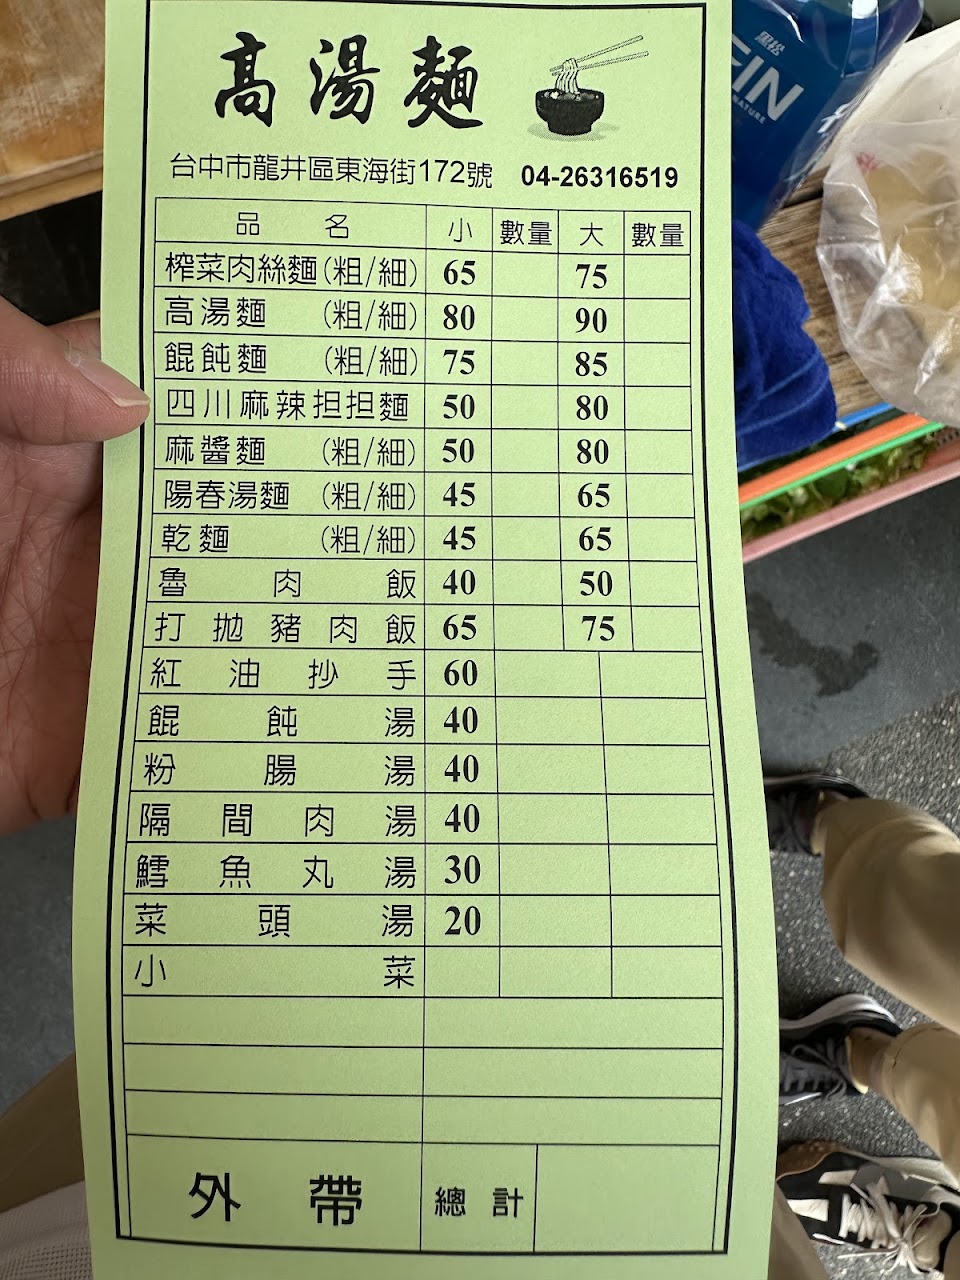 高湯麵
台中市龍井區東海街172號 04-26316519
品名 小 數量 大 數量
榨菜肉絲麵(粗/細) 65 75
高湯麵 (粗/細) 80 90
餛飩麵 (粗/細) 75 85
四川麻辣担担麵 50 80
麻醬麵 (粗/細) 50 80
陽春湯麵 (粗/細) 45 65
乾麵 (粗/細) 45 65
魯肉飯 40 50
打拋豬肉飯 65 75
紅油抄手 60
餛飩湯 40
粉腸湯 40
隔間肉湯 40
鱈魚丸湯 30
菜頭湯 20
小菜
外帶 總計
黑松
FIN